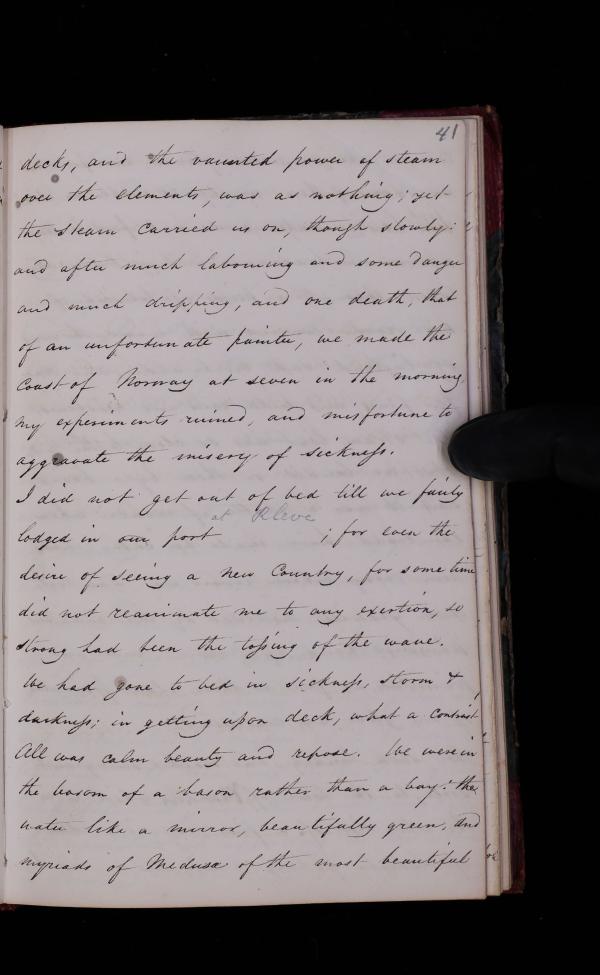 41
decks, and the vaunted power of steam
over the elements, was as nothing; yet
the steam carried us on, though slowly:
and after much labouring and some danger
and much dripping, and one death, that
of an unfortunate painter, we made the
coast of Norway at seven in the morning
my experiments ruined, and misfortune to
aggravate the misery of sickness.
I did not get out of bed till we fairly
at Kleve
lodged in our port ; for even the
desire of seeing a new Country, for some time
did not reanimate me to any exertion, so
strong had been the tossing of the wave.
We had gone to bed in sickness, storm &
darkness; in getting upon deck, what a contrast!
All was calm beauty and repose. We were in
the bosom of a bason rather than a bay: the
water like a mirror, beautifully green, and
myriads of Medusæ of the most beautiful